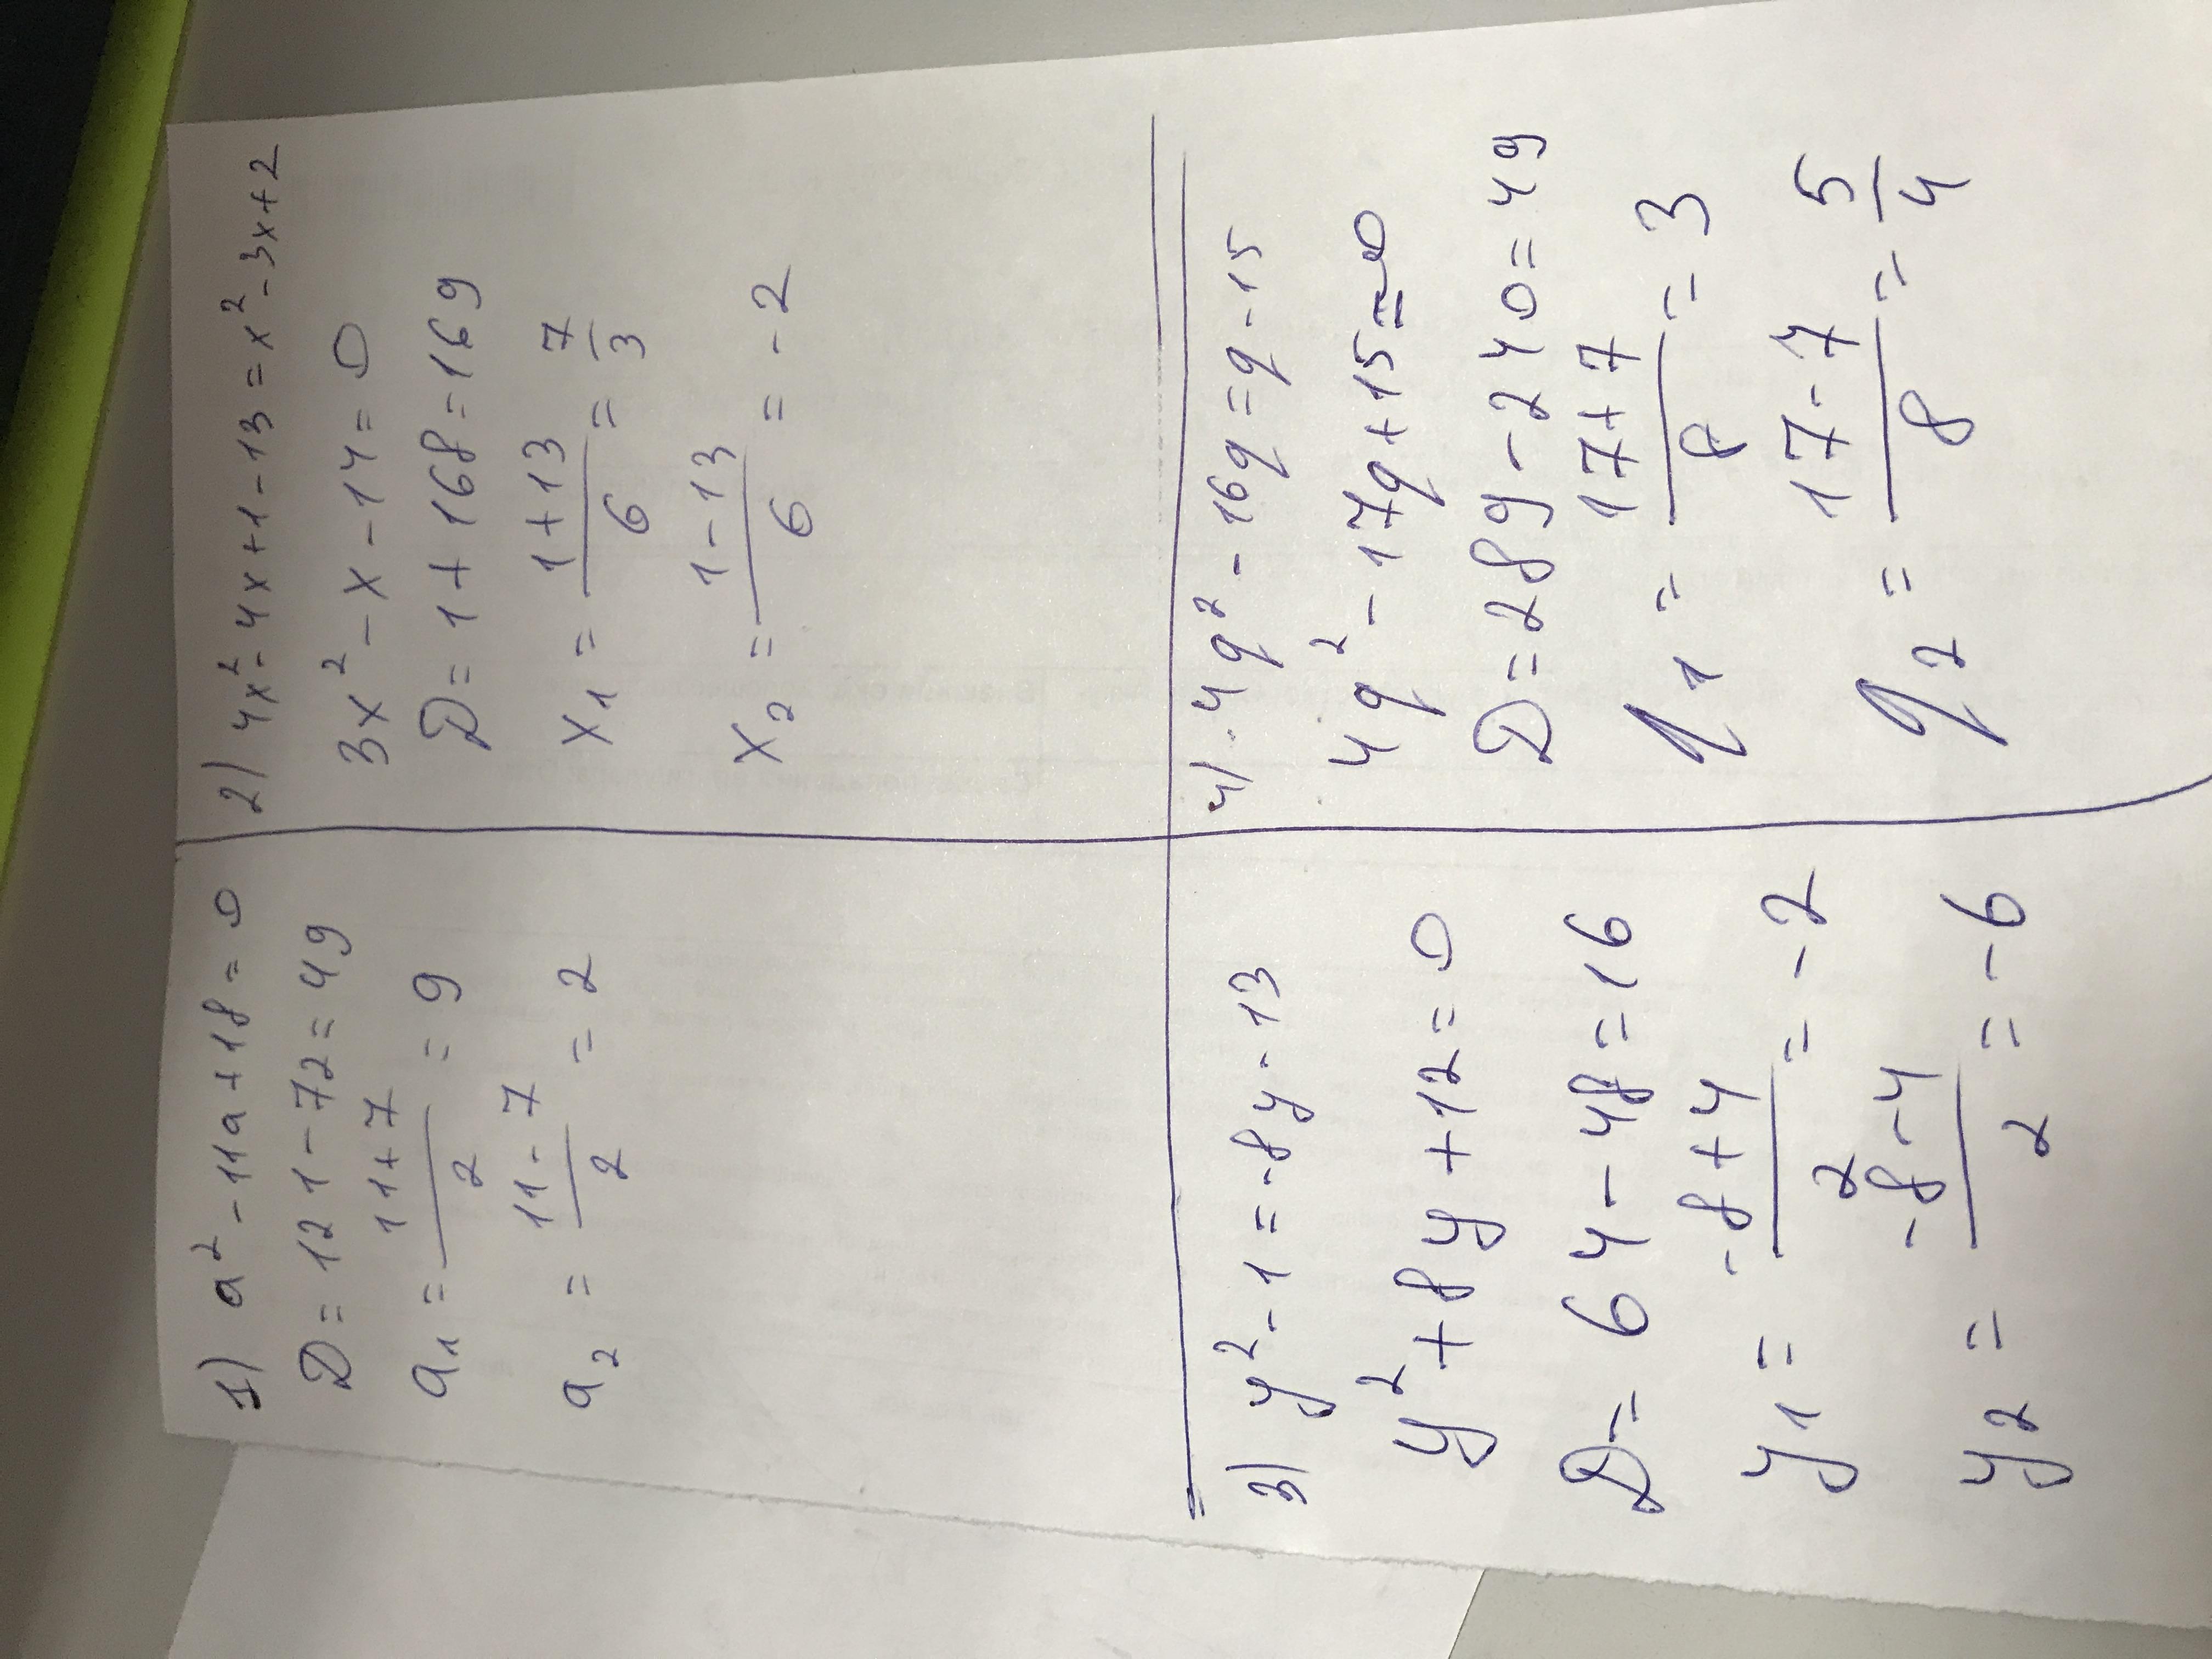 1) a² - 11a + 18 = 0
D = 121 - 72 = 49
a₁ = (11 + 7)/2 = 9
a₂ = (11 - 7)/2 = 2
2) 4x² - 4x + 1 - 13 = x² - 3x + 2
3x² - x - 14 = 0
D = 1 + 168 = 169
x₁ = (1 + 13)/6 = 7/3
x₂ = (1 - 13)/6 = -2
3) y² - 1 = -8y - 13
y² + 8y + 12 = 0
D = 64 - 48 = 16
y₁ = (-8 + 4)/2 = -2
y₂ = (-8 - 4)/2 = -6
4) 4q² - 16q = q - 15
4q² - 17q + 15 = 0
D = 289 - 240 = 49
q₁ = (17 + 7)/8 = 3
q₂ = (17 - 7)/8 = 5/4